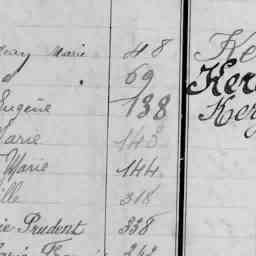 Jean Marie 48 Ke
69 Ker
Eugène 138 Ker
Marie 143
Marie 144
ille 318
ie Prudent 338